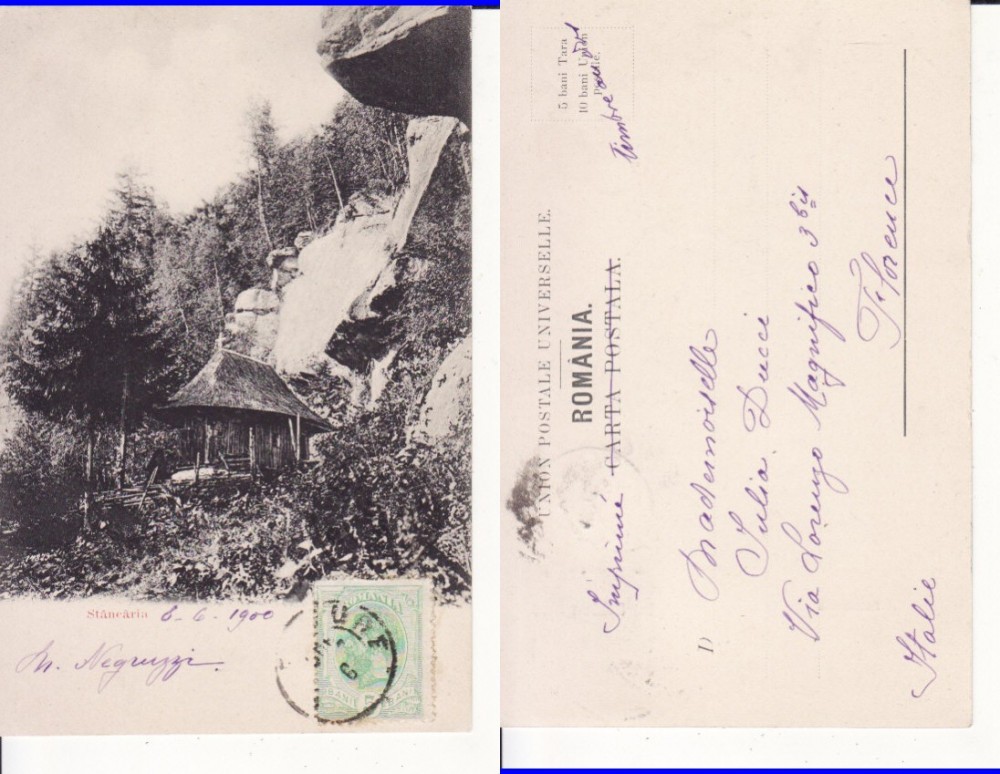 Stâncăria 6-6-1900
M. Negruzzi.
ROMANIA
5 BANI
5 bani Tara
10 bani
Timbre au dos
UNION POSTALE UNIVERSELLE.
ROMÂNIA.
Imprimé CARTA POSTALA.
D
Mademoiselle
Julia Ducci
Via Lorenzo Magnifico 3 bis
Florence
Italie